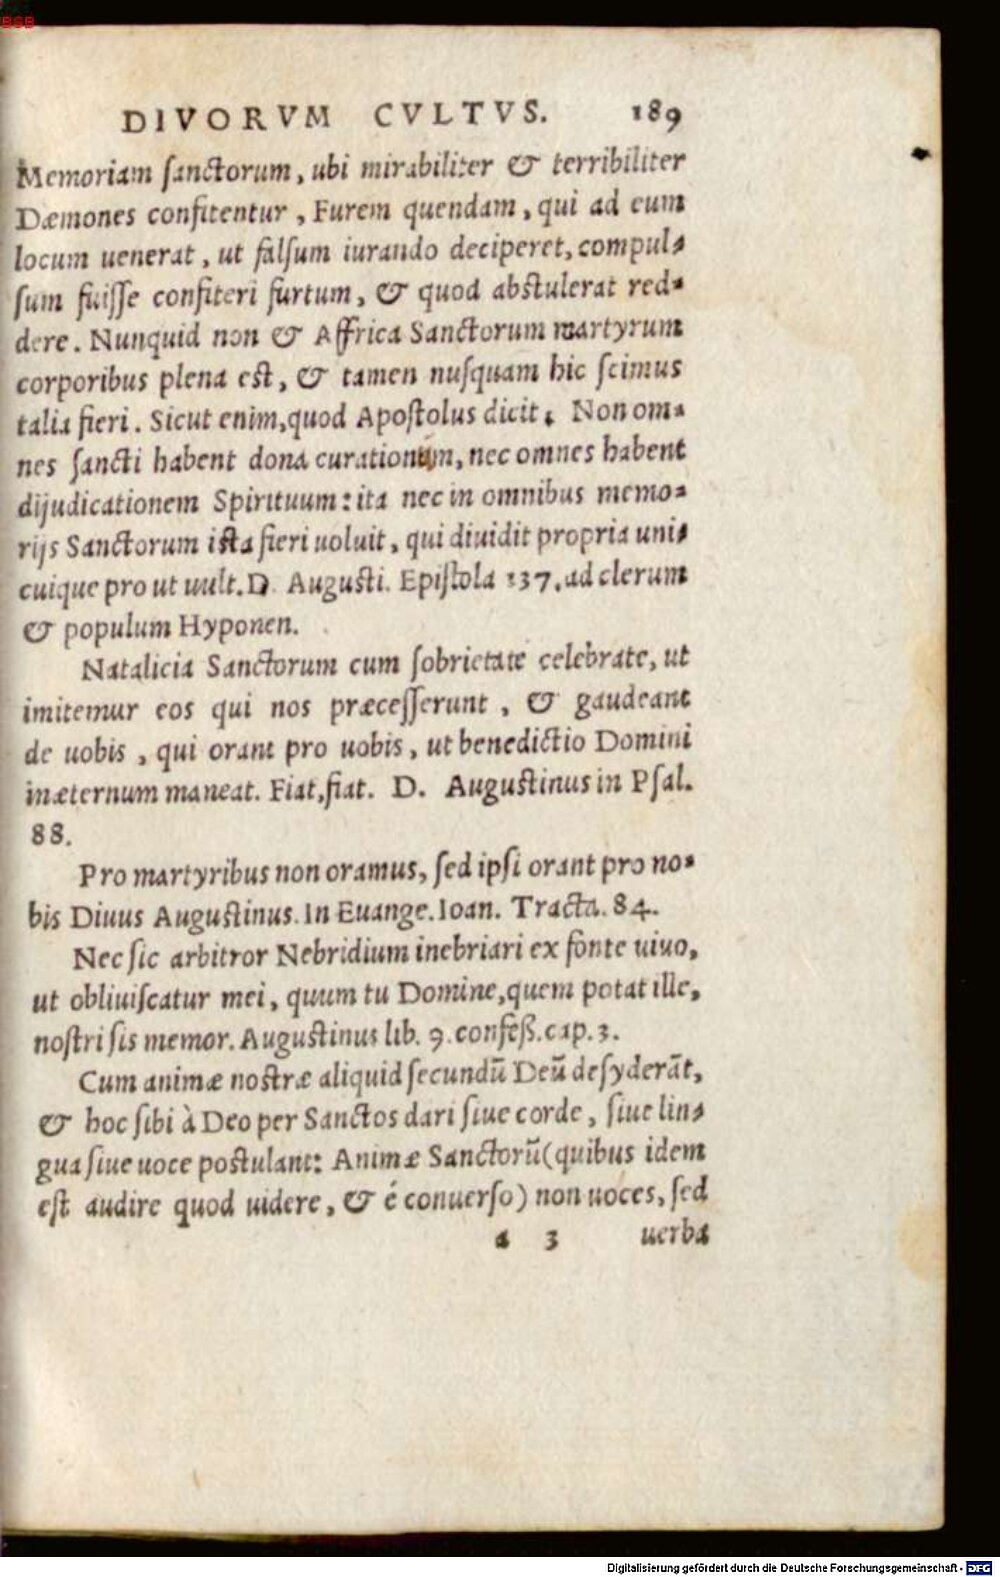 BSB
DIVORVM CVLTVS. 189
Memoriam sanctorum, ubi mirabiliter & terribiliter
Dæmones confitentur, Furem quendam, qui ad eum
locum uenerat, ut falsum iurando deciperet, compul-
sum fuisse confiteri furtum, & quod abstulerat red-
dere. Nunquid non & Affrica Sanctorum martyrum
corporibus plena est, & tamen nusquam hic scimus
talia fieri. Sicut enim, quod Apostolus dicit: Non om-
nes sancti habent dona curationum, nec omnes habent
dijudicationem Spirituum: ita nec in omnibus memo-
rijs Sanctorum ista fieri uoluit, qui diuidit propria uni-
cuique pro ut uult. D. Augusti. Epistola 137. ad clerum
& populum Hyponen.
Natalicia Sanctorum cum sobrietate celebrate, ut
imitemur eos qui nos præcesserunt, & gaudeant
de uobis, qui orant pro uobis, ut benedictio Domini
inæternum maneat. Fiat, fiat. D. Augustinus in Psal.
88.
Pro martyribus non oramus, sed ipsi orant pro no-
bis Diuus Augustinus. In Euange. Ioan. Tracta. 84.
Nec sic arbitror Nebridium inebriari ex fonte uiuo,
ut obliuiscatur mei, quum tu Domine, quem potat ille,
nostri sis memor. Augustinus lib. 9. confeß. cap. 3.
Cum animæ nostræ aliquid secundũ Deũ desyderãt,
& hoc sibi à Deo per Sanctos dari siue corde, siue lin-
gua siue uoce postulant: Animæ Sanctorũ (quibus idem
est audire quod uidere, & é conuerso) non uoces, sed
a 3 uerba
Digitalisierung gefördert durch die Deutsche Forschungsgemeinschaft - DFG